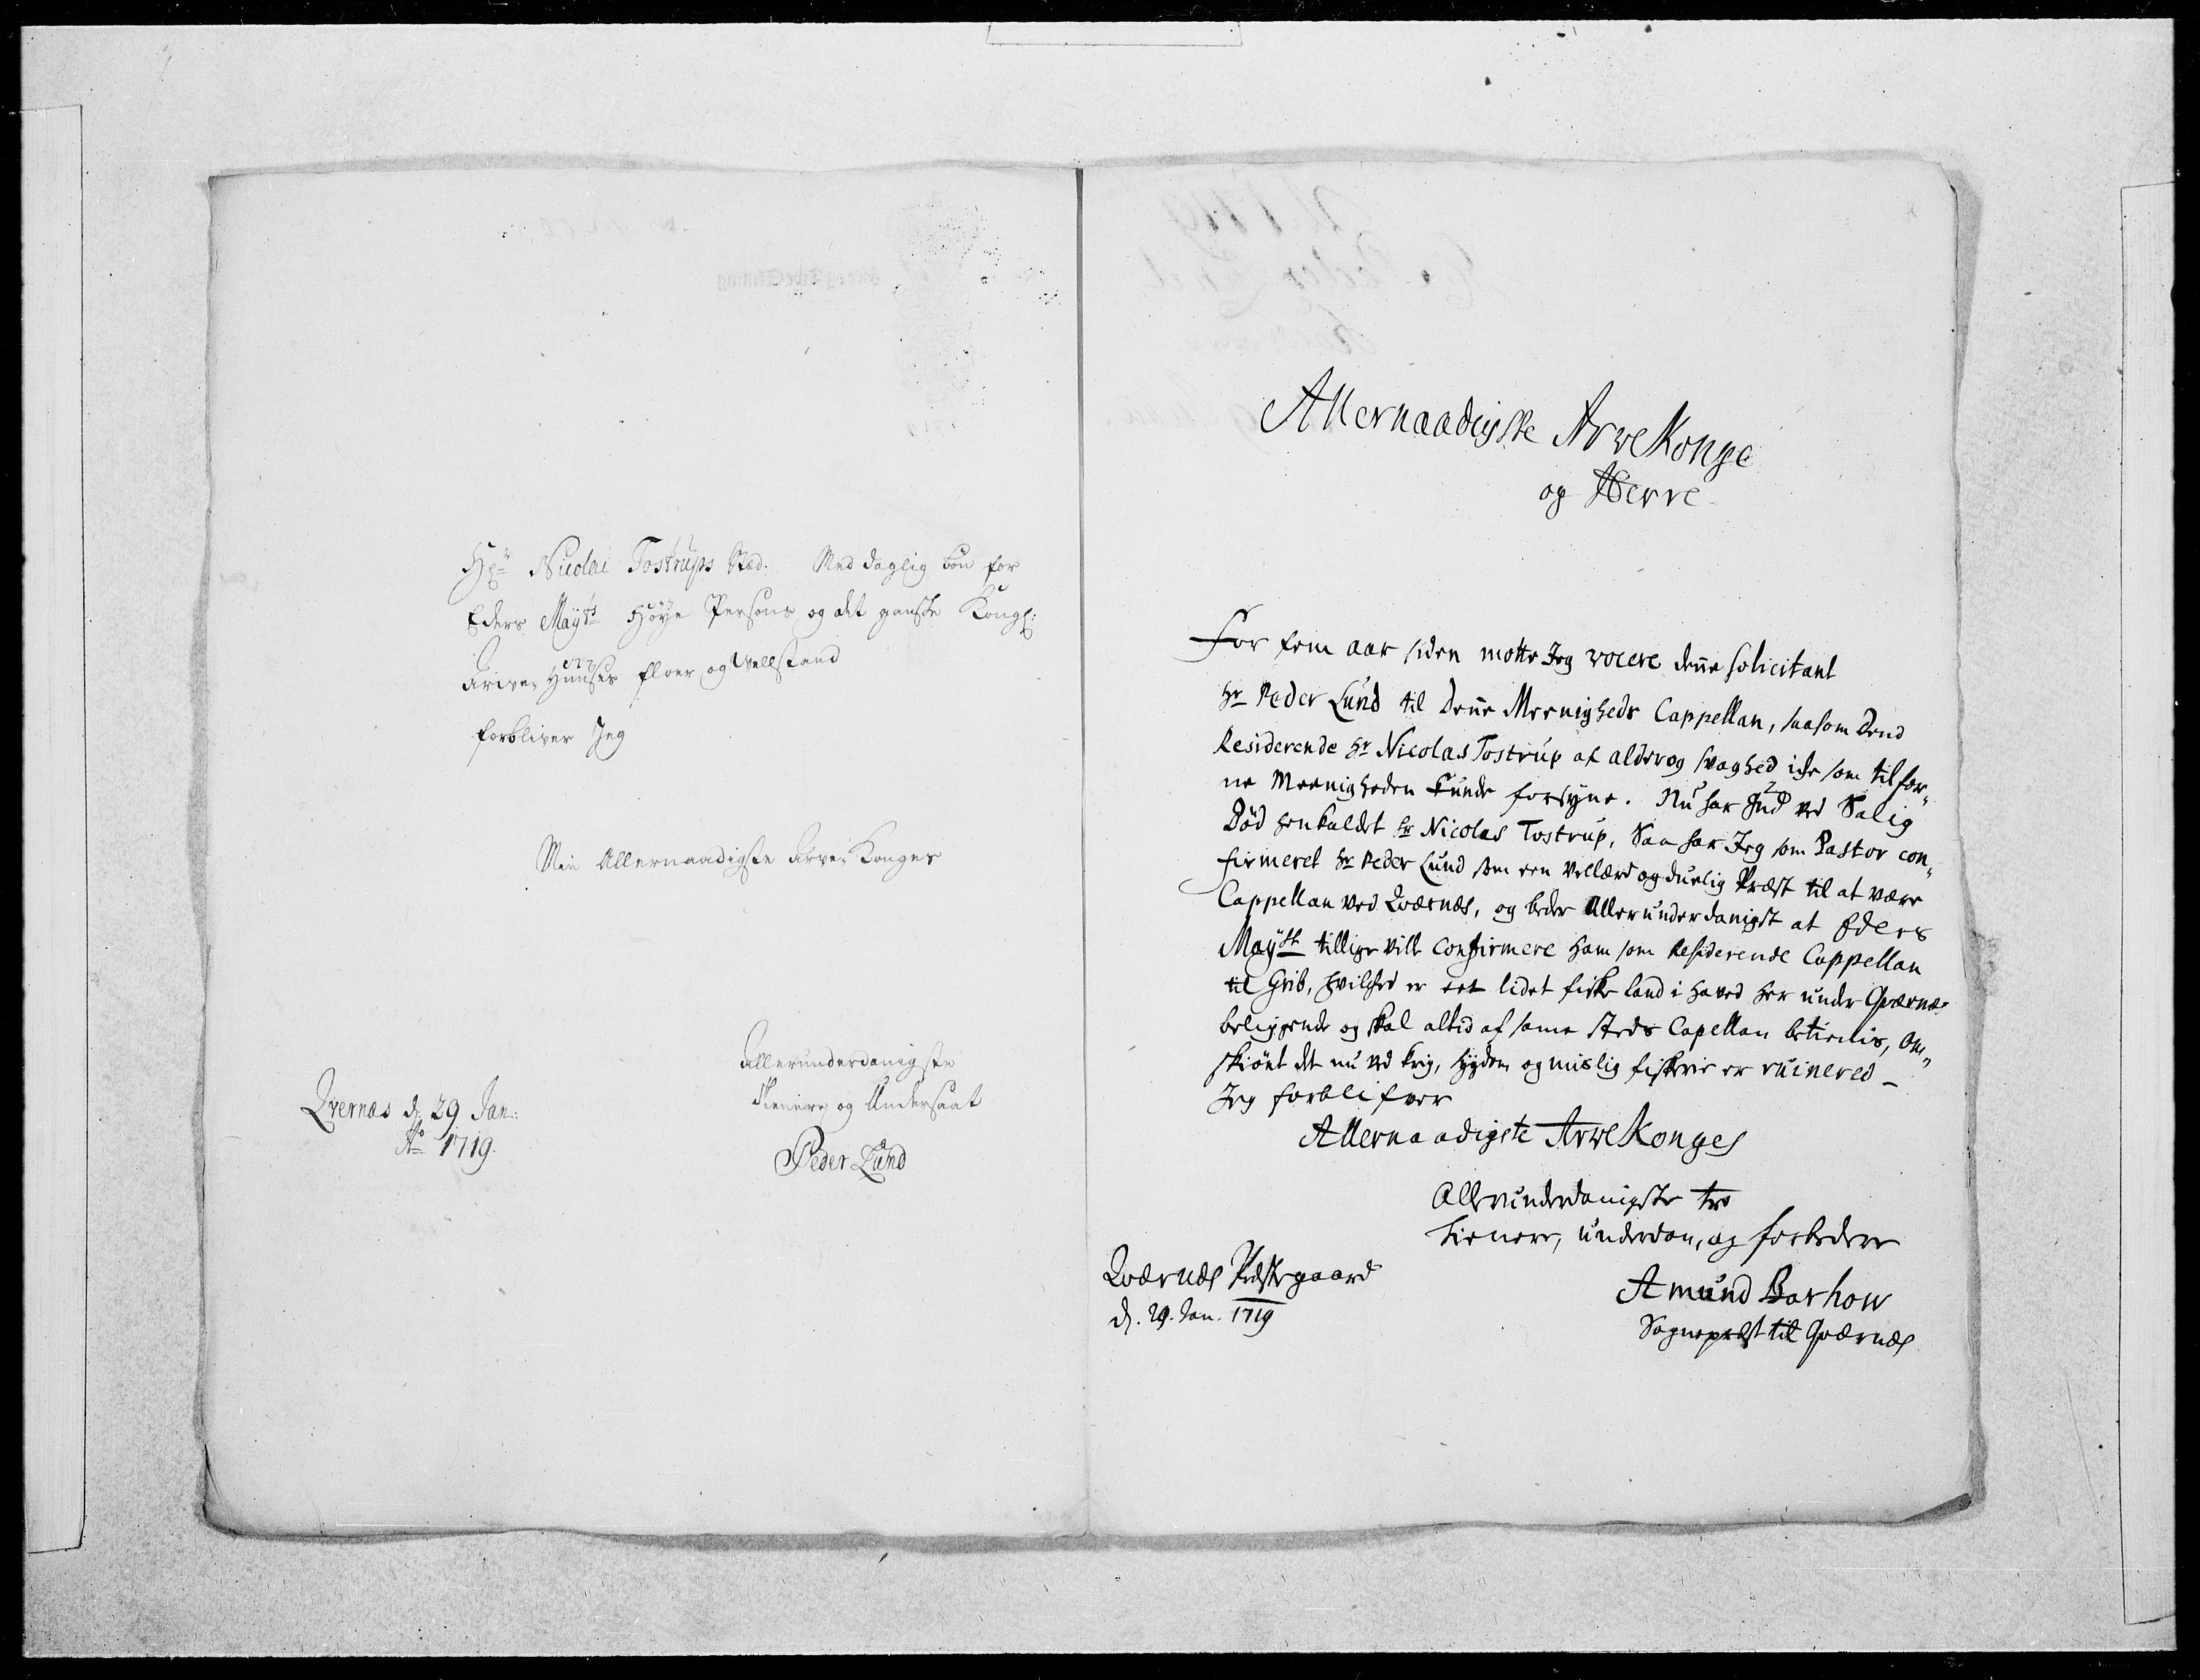 Hr: Nicolai Tostrups Sted. Med daglig bön for
Eders Mayts Höye Persons og det gandske Kongl:
Arive Huuses floer og Vellstand
forbliver Jeg
Min Allernaadigste Arve Konges
Allerunderdanigste
tienere og Undersaat
Peder Lund
Qvernæs d. 29 Jan:
Ao 1719.
Allernaadigste Arve Konge
og Herre
For fem aar siden motte Jeg vocere denne solicitant
Hr Peder Lund til denne Meenigheds Cappellan, saasom Dend
Residerende Hr Nicolas Tostrup af alder og svaghed icke som tilfor„
ne Meenigheden kunde forsyne. Nu har Gud ved Salig
Död henkaldet Hr Nicolas Tostrup, Saa har Jeg som Pastor con„
firmeret Hr Peder Lund som een Vellærd og duelig Præst til at være
Cappellan ved Qværnæs, og beder Allerunderdanigst at Eders
Mayst tillige vill confirmere ham som Residerende Cappellan
til Grib, hvilched er eet lidet fiske land i haved her under Qværnæs
beliggende og skal altid af samme steds Capellan betienis, Om„
skiönt det nu ved krig, sygdom og mislig fiskerie er ruinered –
Jeg forblifver
Allernaadigste Arve Konges
Allerunderdanigste tro
tienere, underdan, og forbedere
Qværnæs Præstegaard
d. 29. Jan. 1719
Amund Barhow
Sognepræst til Qværnæs